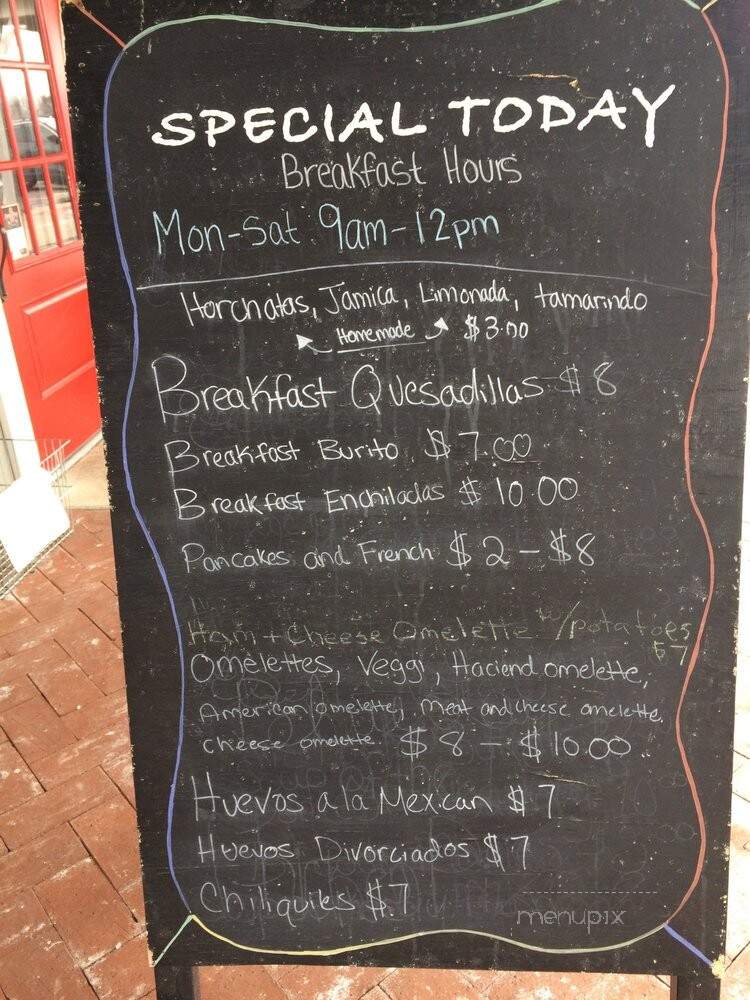 SPECIAL TODAY
Breakfast Hours
Mon-Sat 9am-12pm
Horchatas, Jamica, Limonada, tamarindo
Homemade $3.00
Breakfast Quesadillas $8
Breakfast Burito $7.00
Breakfast Enchiladas $10.00
Pancakes and French $2-$8
Ham + Cheese Omelette w/potatoes
$7
Omelettes, Veggi, Haciend omelette,
American omelette, meat and cheese omelette,
cheese omelette. $8-$10.00..
Huevos a la Mexican $7
Huevos Divorciados $7
Chiliquiles $7
menupix